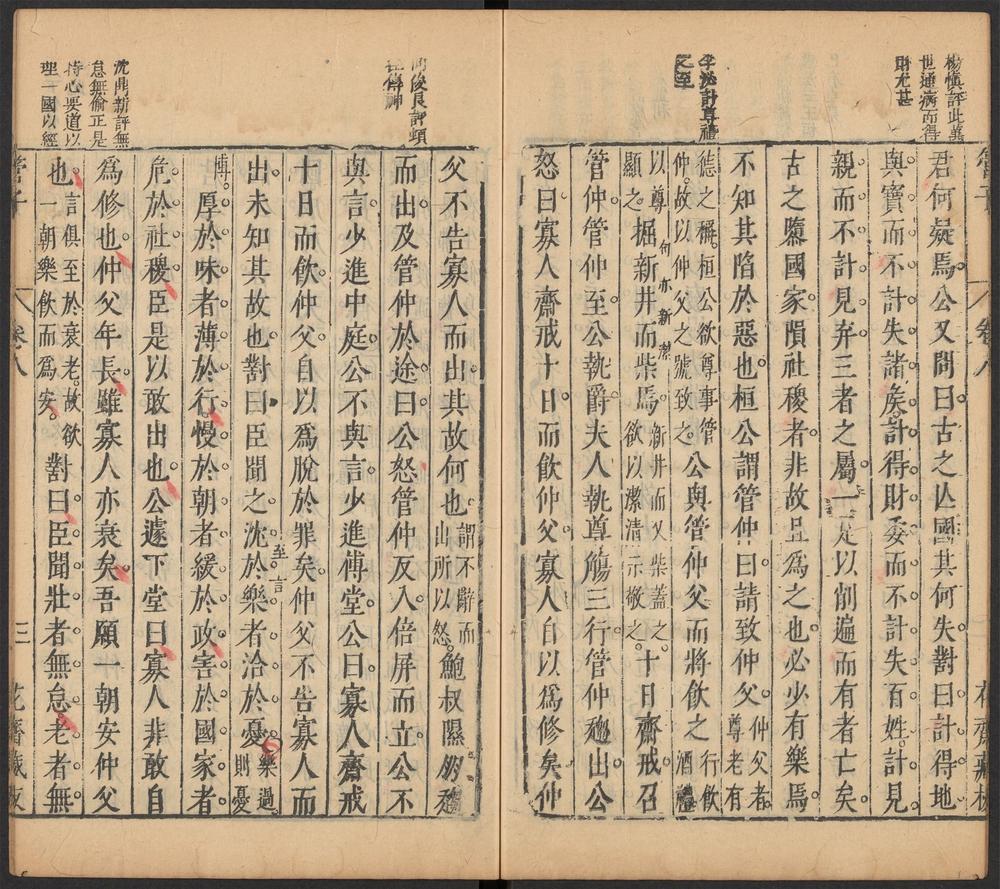 楊慎評此真
世通病而得
財尤甚
君何疑焉公又問曰古之亾國其何失對曰計得地
與寶而不計失諸矦計得財委而不計失百姓計見
親而不計見弃三者之屬一足以削遍而有者亡矣
古之隳國家隕社稷者非故且爲之也必少有樂焉
不知其陷於惡也桓公謂管仲曰請致仲父仲父者尊老有
德之稱桓公欲尊事管仲故以仲父之號致之公與管仲父而將飲之行飲酒禮
以尊顯之掘新井而柴焉新井而又柴蓋之欲以潔清示敬之十日齋戒召
句亦新潔
管仲管仲至公執爵夫人執尊觴三行管仲趨出公
怒曰寡人齋戒十日而飲仲父寡人自以爲修矣仲
卷八
父不告寡人而出其故何也謂不辭而出所以怒鮑叔隰朋趨
而出及管仲於途曰公怒管仲反入倍屏而立公不
與言少進中庭公不與言少進傅堂公曰寡人齋戒
十日而飲仲父自以爲脫於罪矣仲父不告寡人而
出未知其故也對曰臣聞之沈於樂者洽於憂樂過則憂
至言
博厚於味者薄於行慢於朝者緩於政害於國家者
危於社稷臣是以敢出也公遽下堂曰寡人非敢自
爲修也仲父年長雖寡人亦衰矣吾願一朝安仲父
也言俱至於衰老故欲一朝樂飲而爲安對曰臣聞壯者無怠老者無
沈鼎新評無
怠無偷正是
持心要道以
理一國以經
管子
卷八
三
花齋藏板